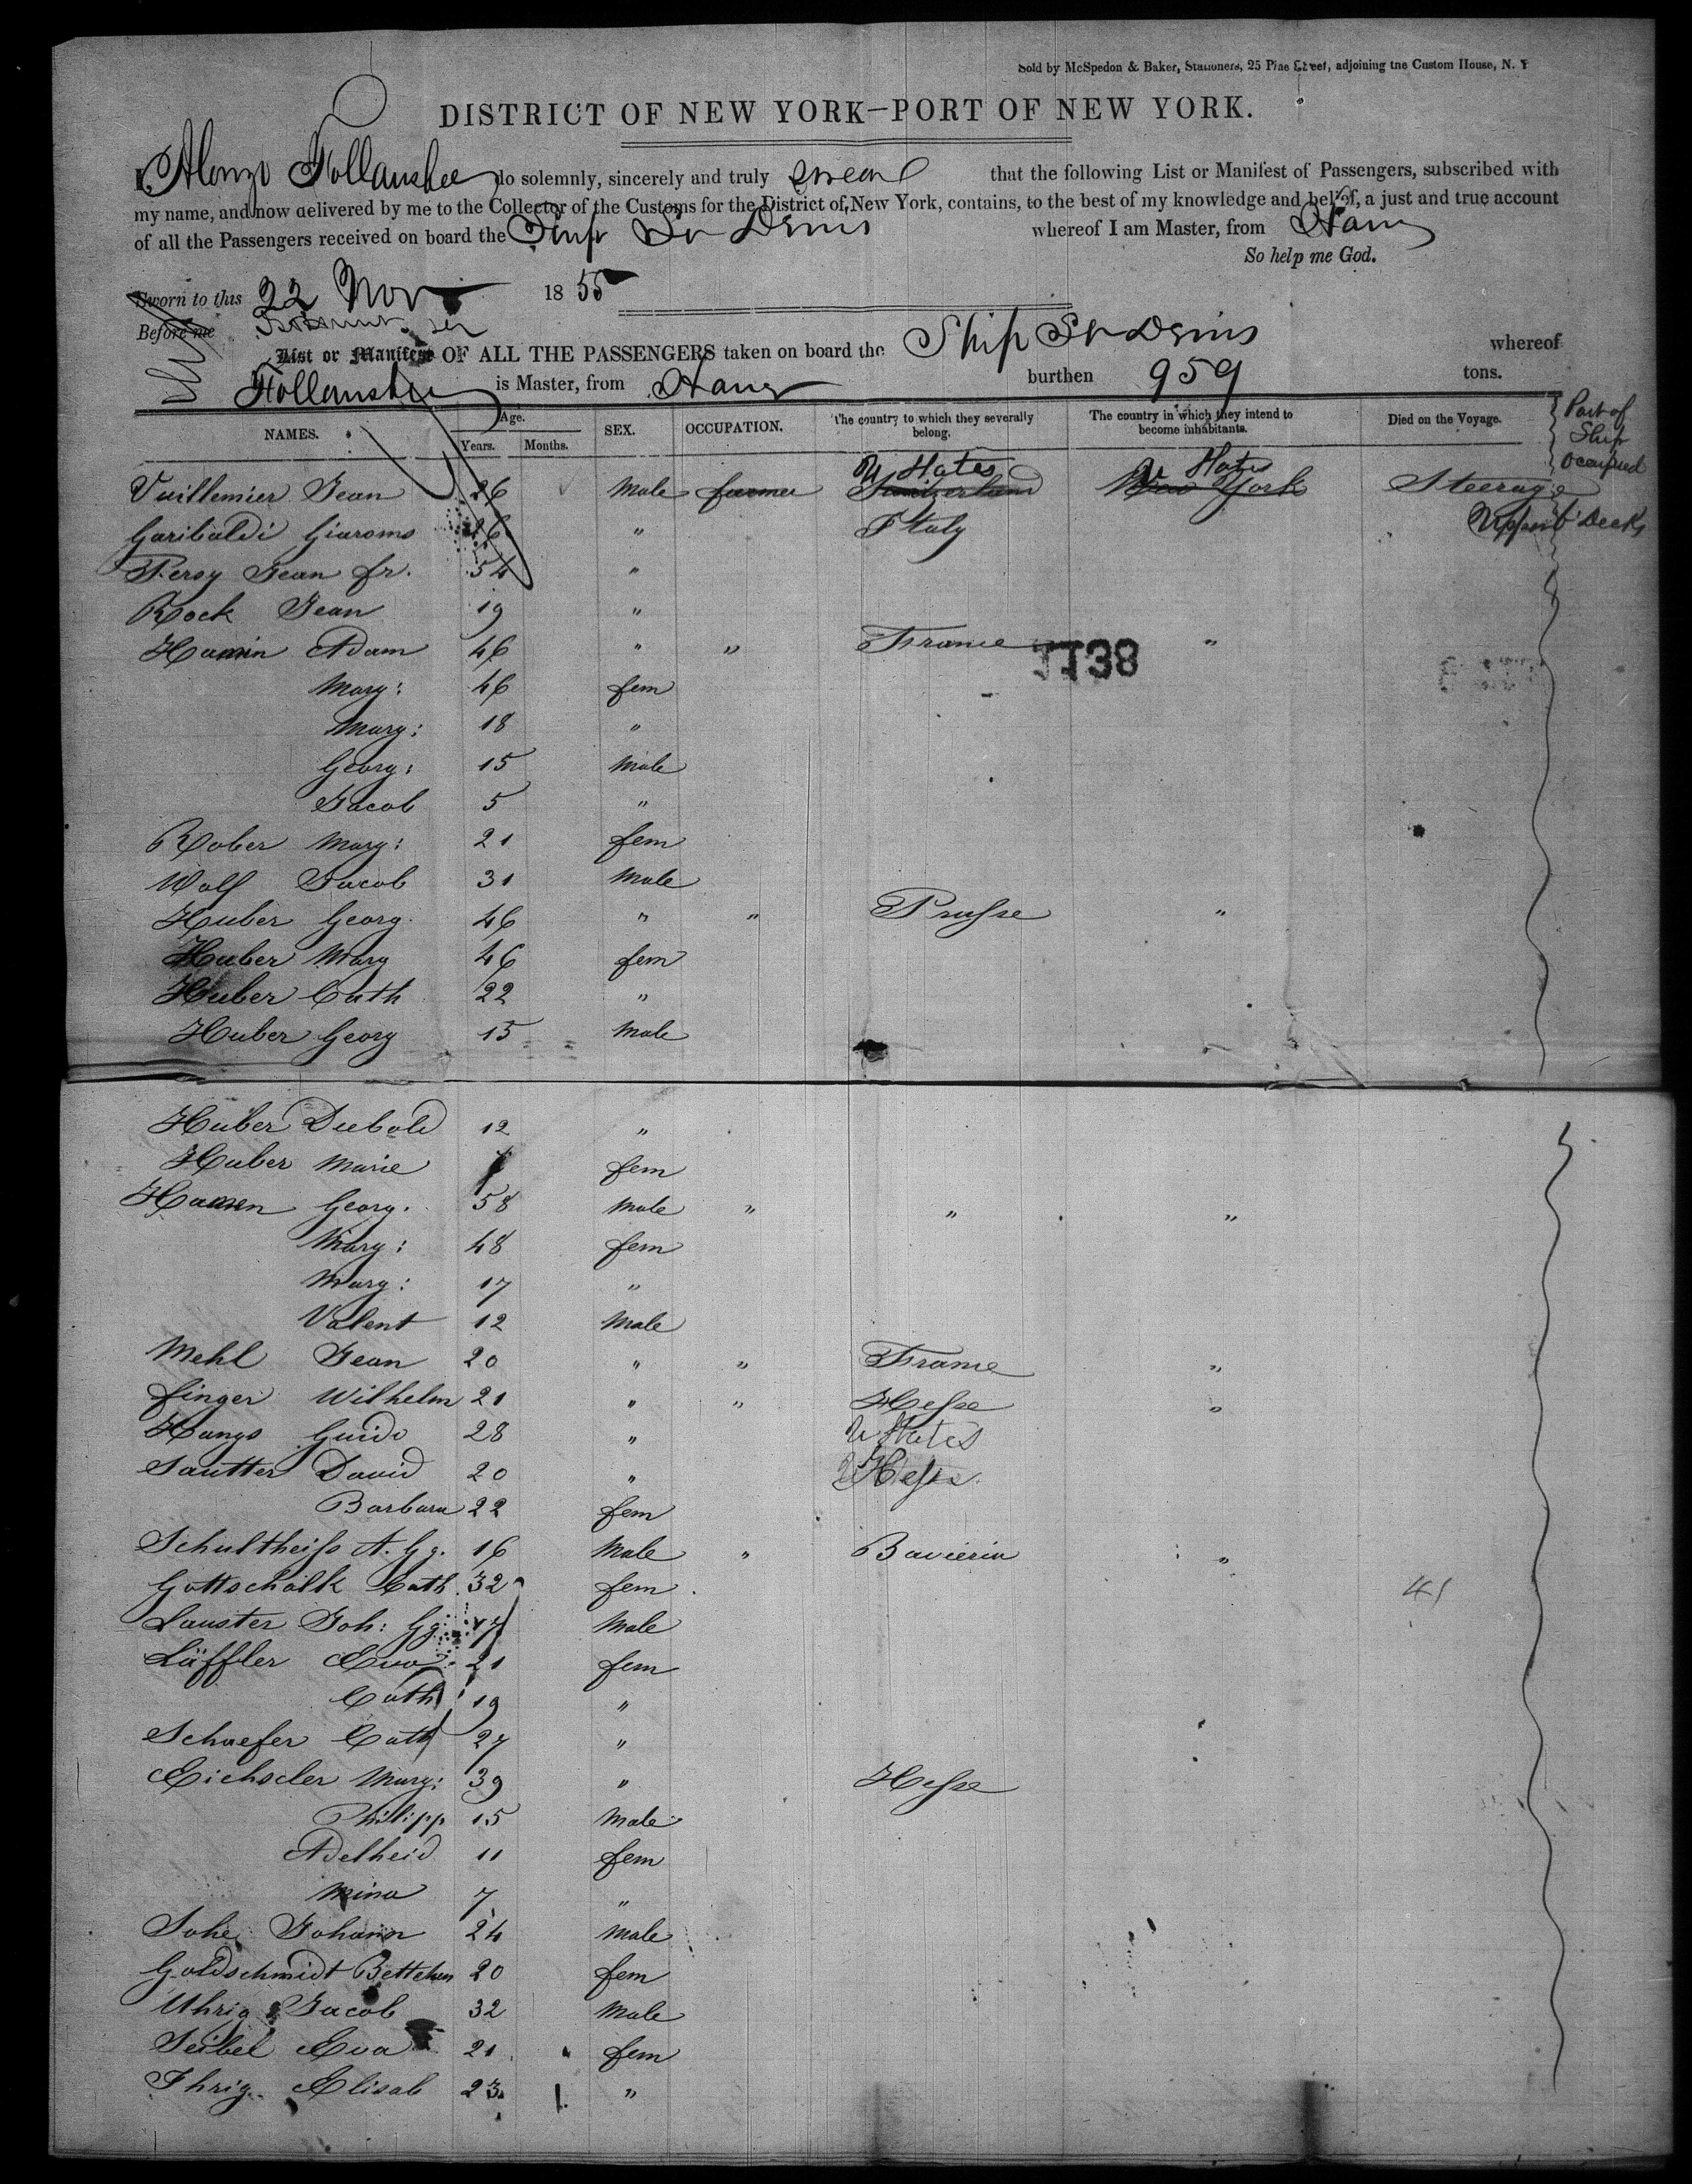 Sold by McSpedon & Baker, Stationers, 25 Pine Street, adjoining the Custom House, N. Y
DISTRICT OF NEW YORK—PORT OF NEW YORK.
I, Alonzo Follansbee do solemnly, sincerely and truly swear that the following List or Manifest of Passengers, subscribed with
my name, and now delivered by me to the Collector of the Customs for the District of New York, contains, to the best of my knowledge and belief, a just and true account
of all the Passengers received on board the Ship St Denis whereof I am Master, from Havre
So help me God.
Sworn to this 22 Nov 1855
Before me
List or Manifest OF ALL THE PASSENGERS taken on board the Ship St Denis whereof
Follansbee is Master, from Havre burthen 959 tons.
NAMES. Age. Years. Months. SEX. OCCUPATION. The country to which they severally belong. The country in which they intend to become inhabitants. Died on the Voyage. Part of Ship occupied
Vuillemier Jean 26 Male farmer U States Switzerland U States New York Steerage
Garibaldi Giaromo 26 " Italy Upper b Decks
Persy Jean fr. 54 "
Rock Jean 19 "
Hamin Adam 46 " " France "
1138
Mary: 46 fem
Mary: 18 "
Georg: 15 Male
Jacob 5 "
Rober Mary: 21 fem
Wolf Jacob 31 Male
Huber Georg. 46 " " Prusse "
Huber Mary 46 fem
Huber Cath 22 "
Huber Georg 15 Male
Huber Diebold 12 "
Huber Marie fem
Hamen Georg. 58 Male " " "
Mary: 48 fem
Mary: 17 "
Valent 12 Male
Mehl Jean 20 " " France "
finger Wilhelm 21 " " Hesse "
Hangs Guido 28 " U States
Sautter David 20 " Hesse
Barbara 22 fem
Schultheiss A. Gg. 16 Male " Bavieria "
Gottschalk Cath. 32 fem 41
Lauster Joh: Gg. 47 Male
Läffler Eva 21 fem
Cath 19 "
Schaefer Cath 27 "
Eichscler Mary: 39 " Hesse
Philipp 15 Male
Adelheid 11 fem
Mina 7 "
Sohe Johann 24 Male
Goldschmidt Bettchen 20 fem
Uhrig Jacob 32 Male
Seibel Eva 21 fem
Ihrig Elisab 23 "